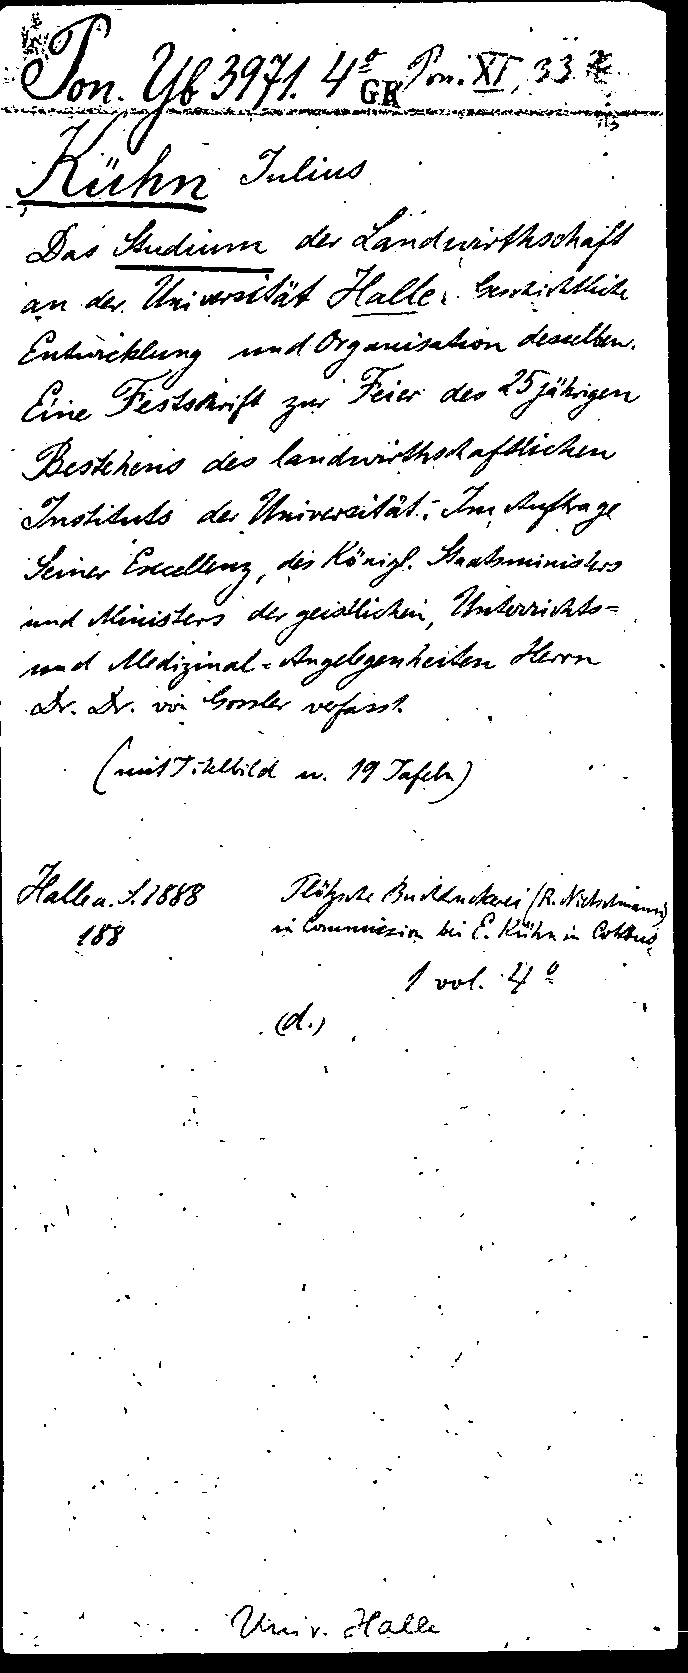 Pon. Yb 3971. 4º GR Pon. XI, 33
Kühn Julius
Das Studium der Landwirthschaft
an der Universität Halle. Geschichtliche
Entwicklung und Organisation desselben.
Eine Festschrift zur Feier des 25jährigen
Bestehens des landwirthschaftlichen
Instituts der Universität. Im Auftrage
Seiner Excellenz, des Königl. Staatsministers
und Ministers der geistlichen, Unterrichts=
und Medizinal-Angelegenheiten Herrn
Dr. Dr. von Gossler verfasst.
(mit Titelbild u. 19 Tafeln)
Halle a. S. 1888 Plötzsche Buchdruckerei (R. Nietschmann)
188 in Commission bei E. Kühn in Cottbus
1 vol. 4º
(d.)
Univ. Halle